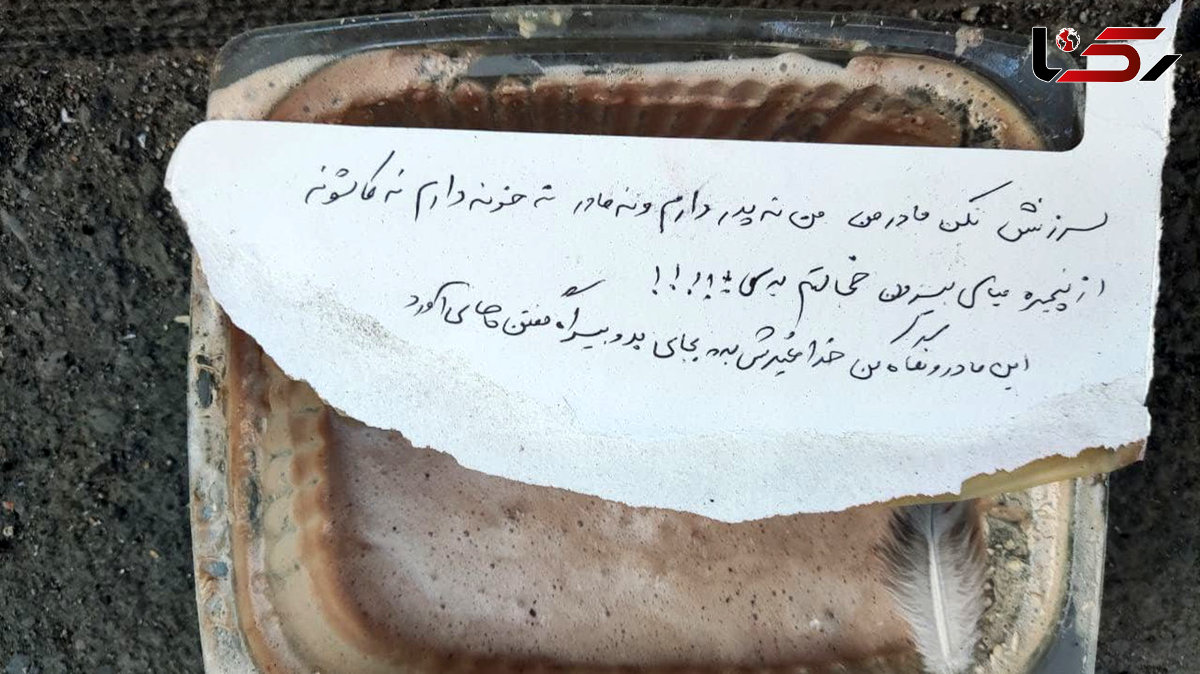 رکنا
سرزنش نکن مادر من من نه پدر دارم و نه مادر نه خونه دارم نه کاشونه
از پنجره میای بیرون خجالتم میدی؟!؟!!!
این مادر و نگاه کن خدا خیرش بده بجای بد و بیراه گفتن چای آورد